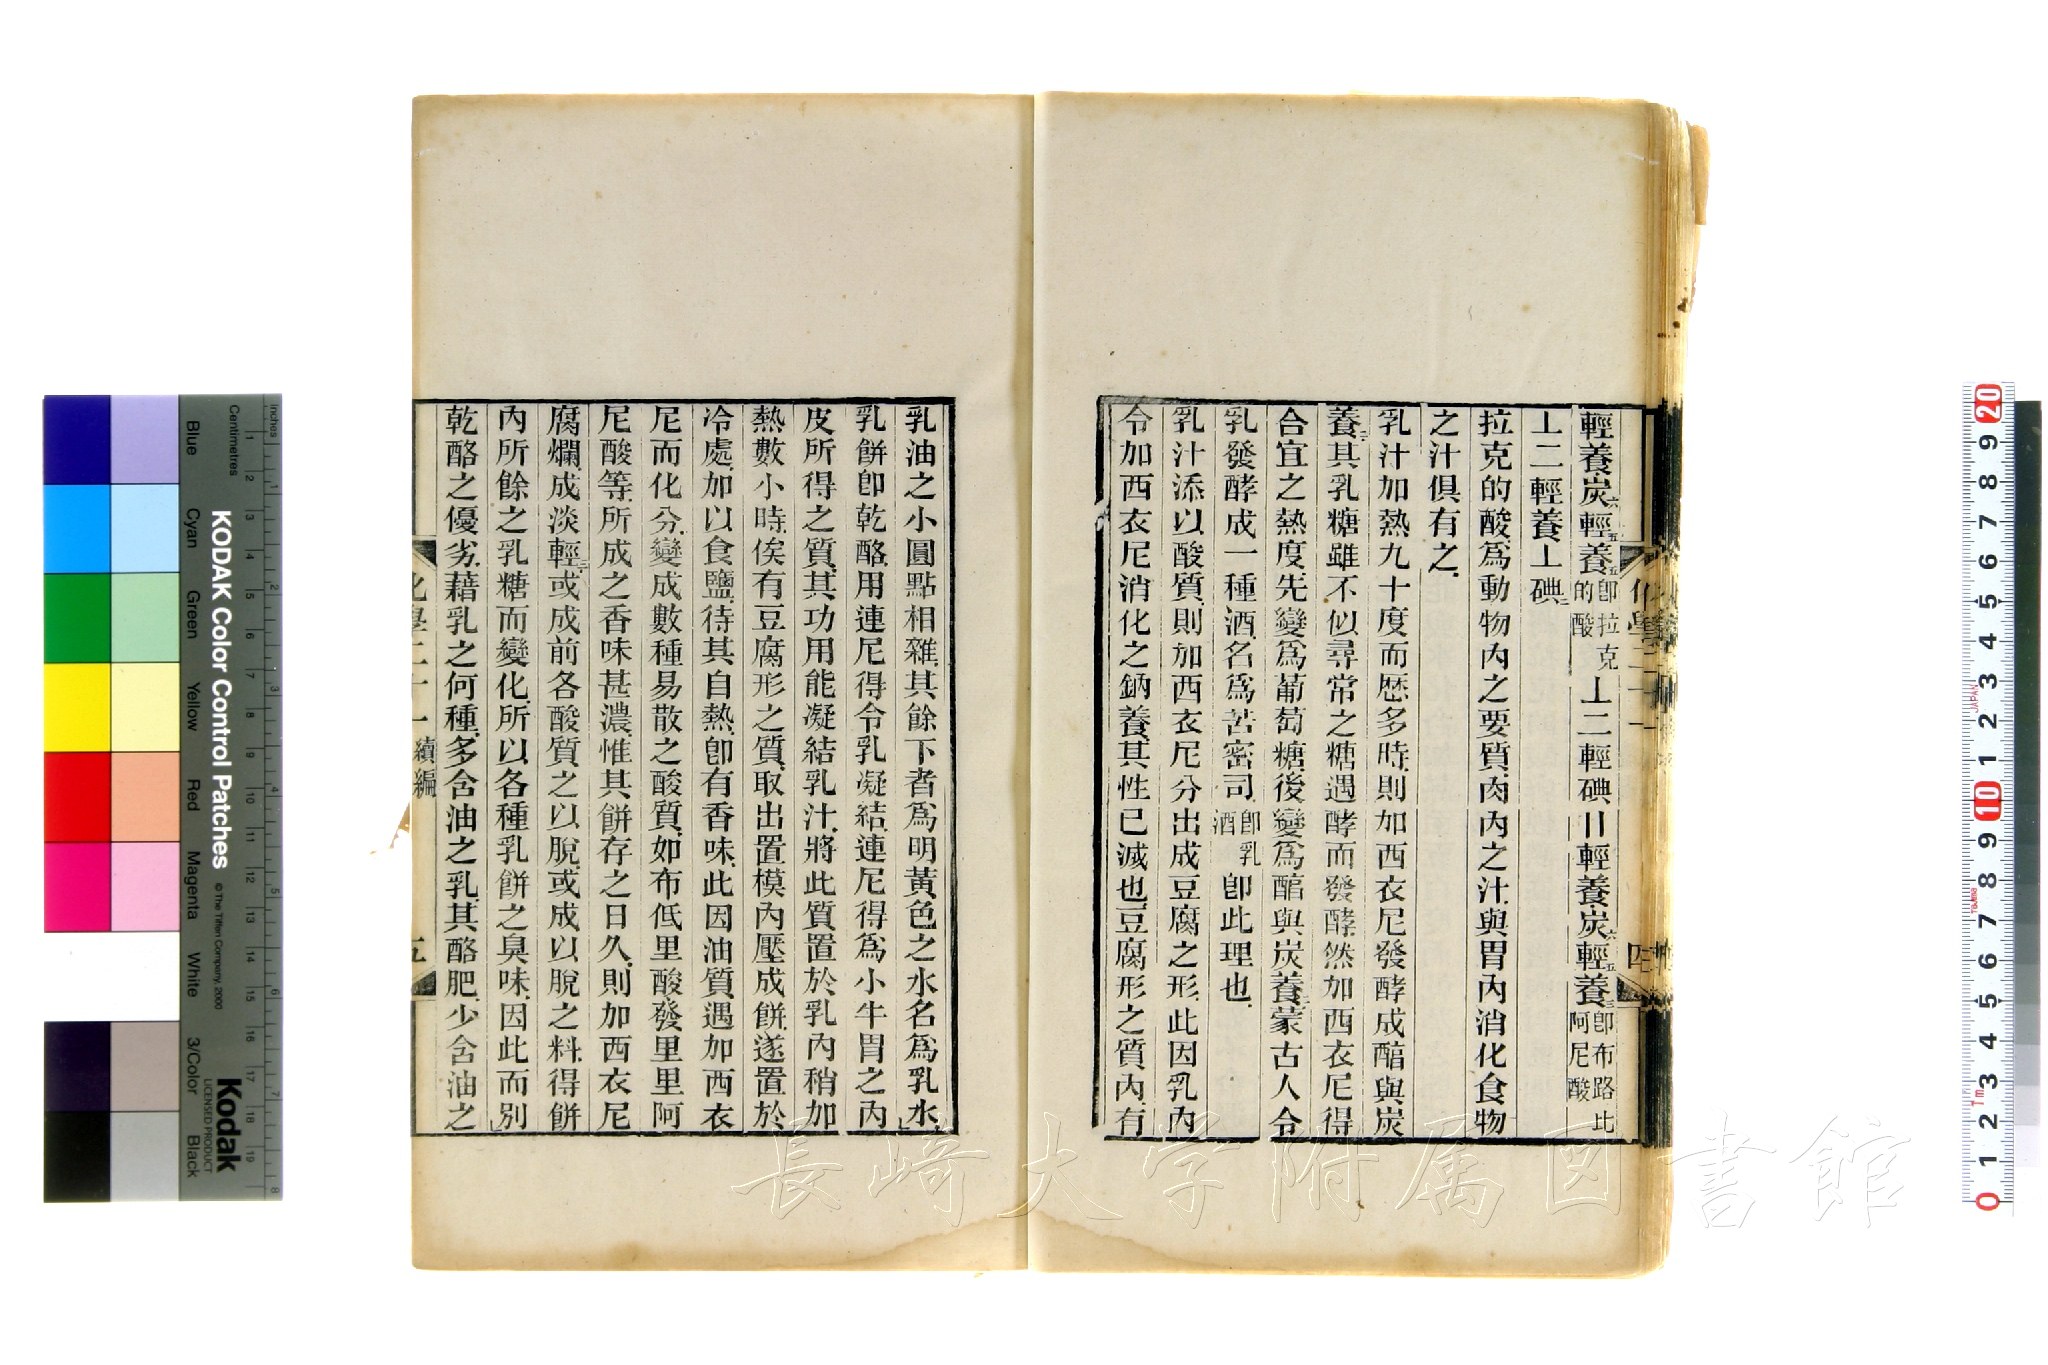 輕養炭六輕五養五即拉克的酸⊥二輕碘〢輕養炭六輕五養三即布路比阿尼酸
⊥二輕養⊥碘二
拉克的酸爲動物內之要質肉內之汁與胃內消化食物
之汁俱有之
乳汁加熱九十度而歷多時則加西衣尼發酵成醕與炭
養二其乳糖雖不似尋常之糖遇酵而發酵然加西衣尼得
合宜之熱度先變爲葡萄糖後變爲醕與炭養二蒙古人令
乳發酵成一種酒名爲苦密司即乳酒即此理也
乳汁添以酸質則加西衣尼分出成豆腐之形此因乳內
令加西衣尼消化之鈉養其性已滅也豆腐形之質內有
乳油之小圓點相雜其餘下者爲明黃色之水名爲乳水
乳餅卽乾酪用連尼得令乳凝結連尼得爲小牛胃之內
皮所得之質其功用能凝結乳汁將此質置於乳內稍加
熱數小時俟有豆腐形之質取出置模內壓成餅遂置於
冷處加以食鹽待其自熱卽有香味此因油質遇加西衣
尼而化分變成數種易散之酸質如布低里酸發里里阿
尼酸等所成之香味甚濃惟其餅存之日久則加西衣尼
腐爛成淡輕三或成前各酸質之以脫或成以脫之料得餅
內所餘之乳糖而變化所以各種乳餅之臭味因此而別
乾酪之優劣藉乳之何種多含油之乳其酪肥少含油之
化學二十一 續編 五
化學二十一 四
KODAK Color Control Patches
© The Tiffen Company, 2000
Kodak
LICENSED PRODUCT
Inches
Centimetres
Blue Cyan Green Yellow Red Magenta White 3/Color Black
JAPAN
長崎大学附属図書館